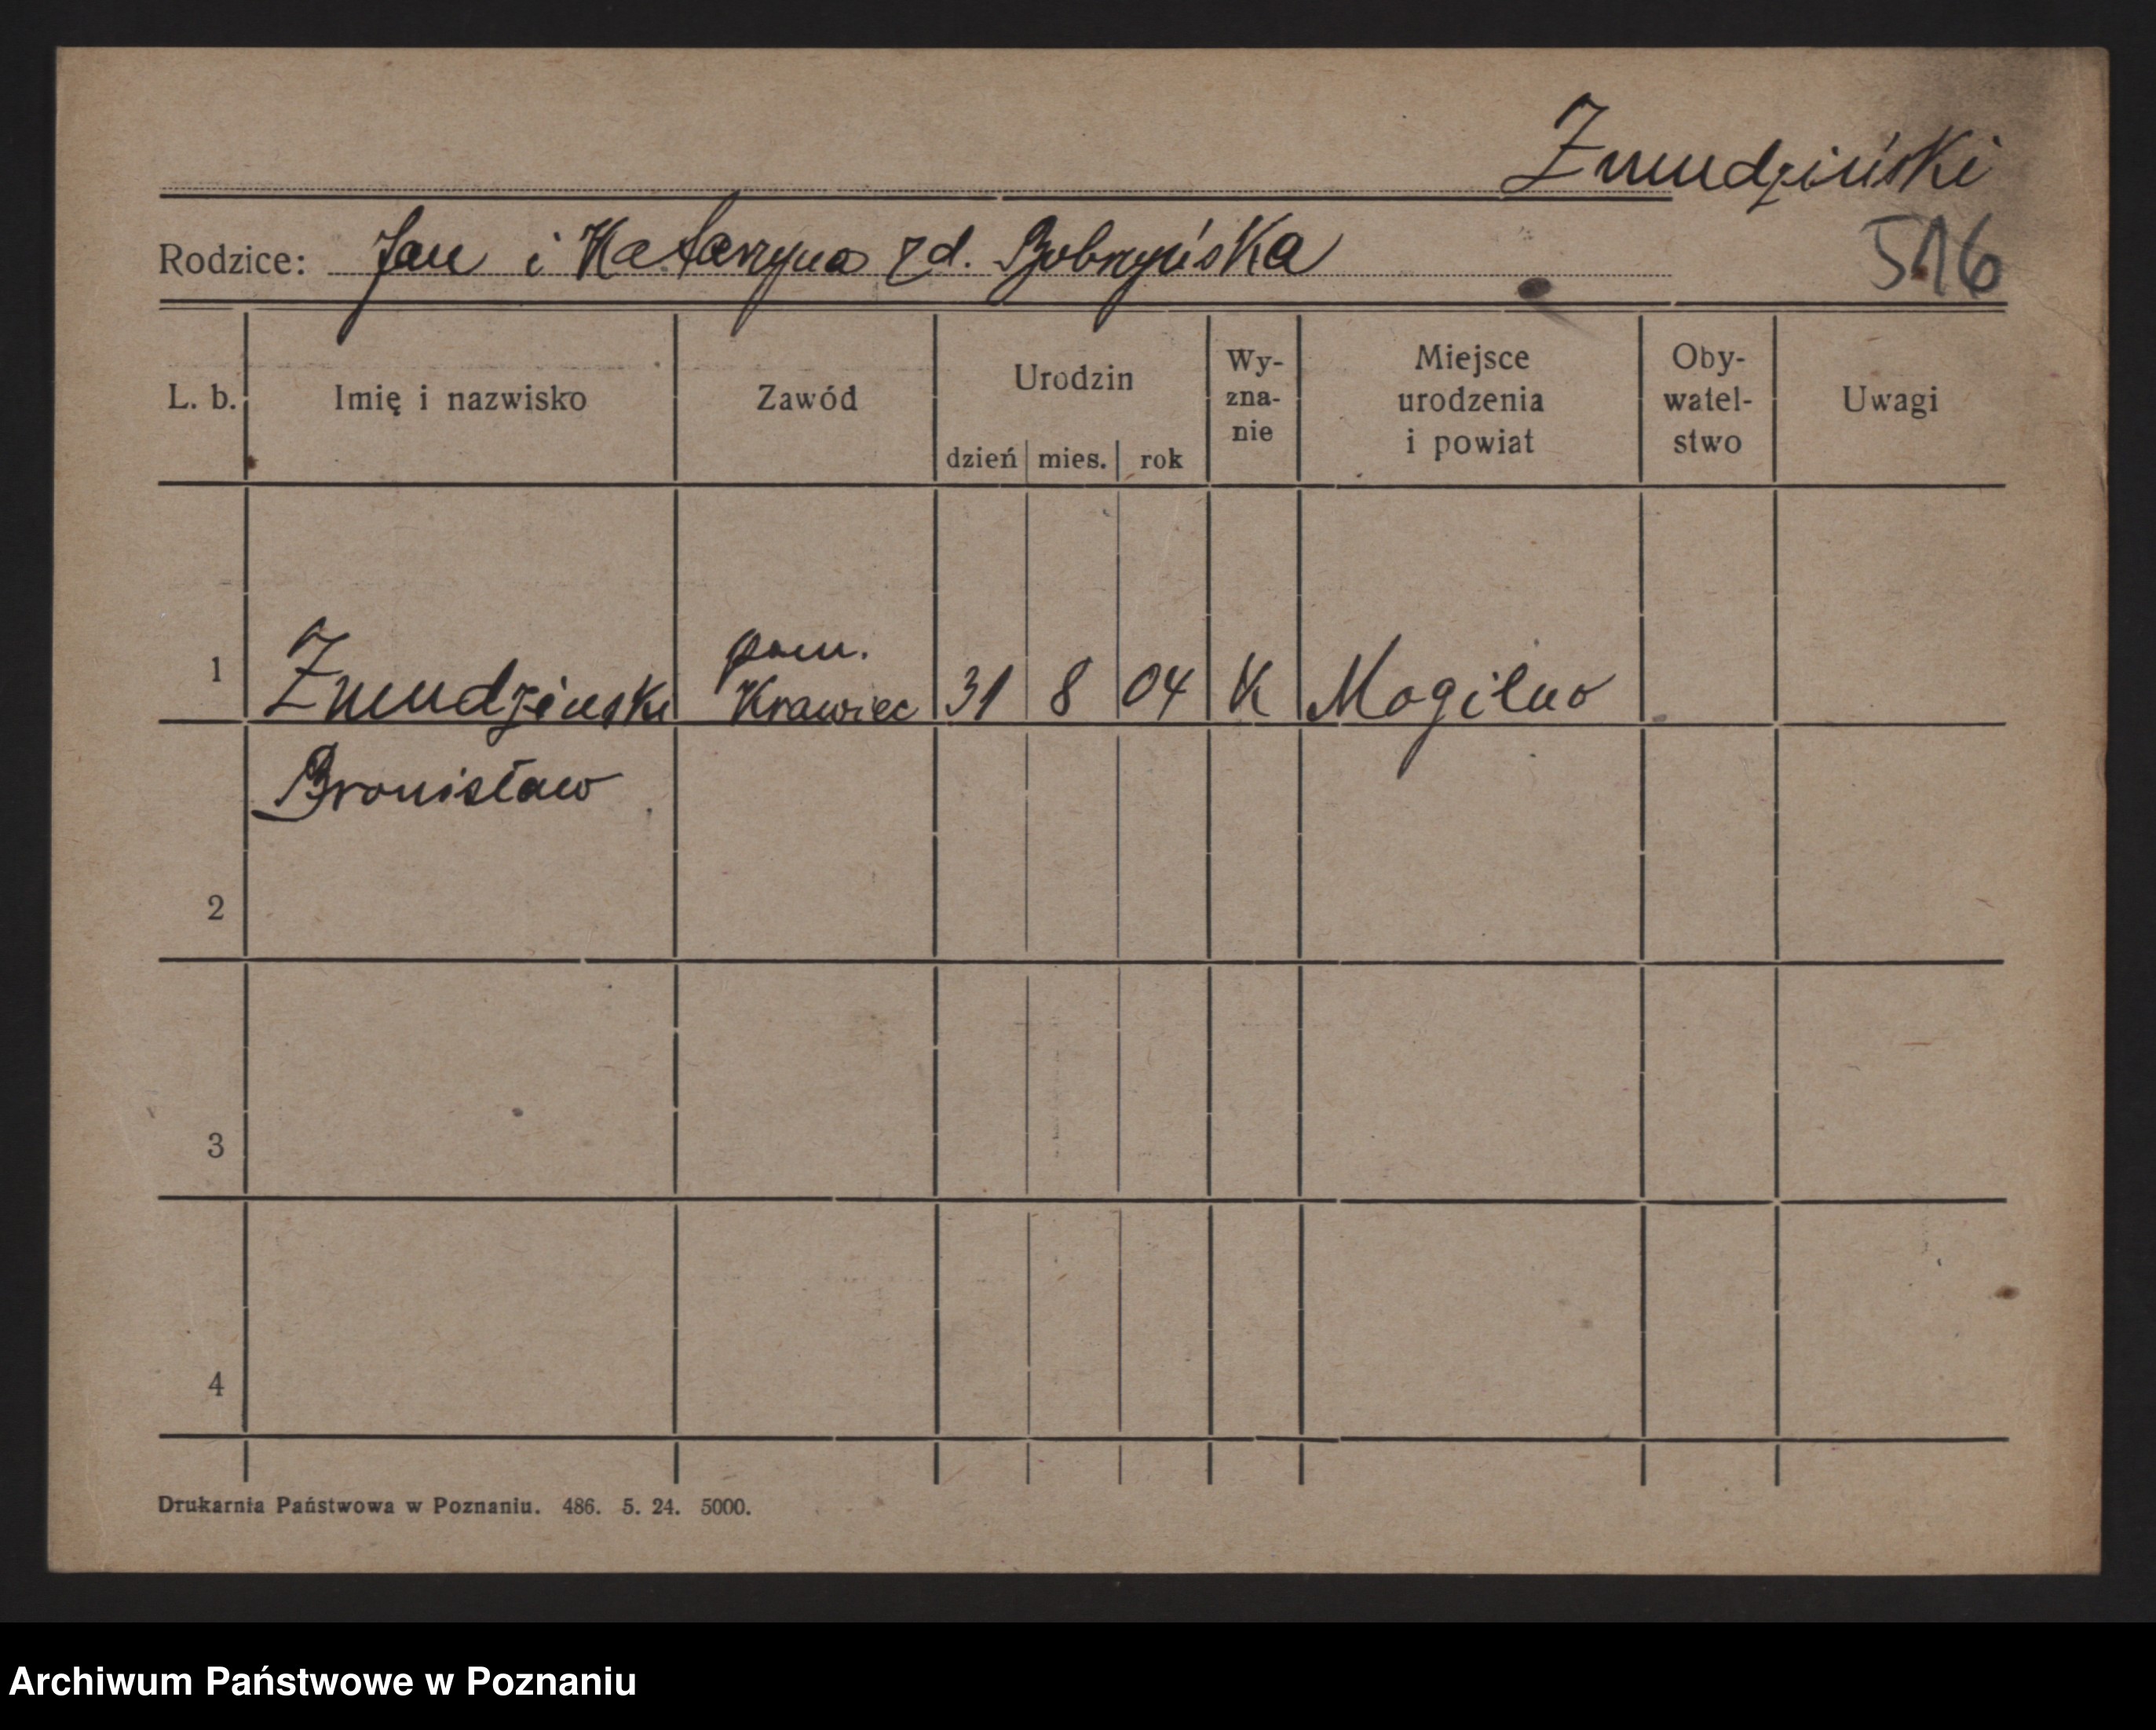 Żmudziński
516
Rodzice: Jan i Katarzyna zd. Bobrzyńska
L. b. Imię i nazwisko Zawód Urodzin dzień mies. rok Wy-zna-nie Miejsce urodzenia i powiat Oby-watel-stwo Uwagi
pom.
1 Żmudzinski Krawiec 31 8 04 K Mogilno
Bronisław
2
3
4
Drukarnia Państwowa w Poznaniu. 486. 5. 24. 5000.
Archiwum Państwowe w Poznaniu